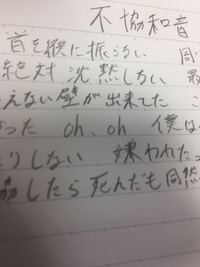 不協和音
首を縦に振らない 周
絶対 沈黙しない 最
えない壁が出来てた こ
った oh, oh 僕は
りしない 嫌われた
協したら死んだも同然